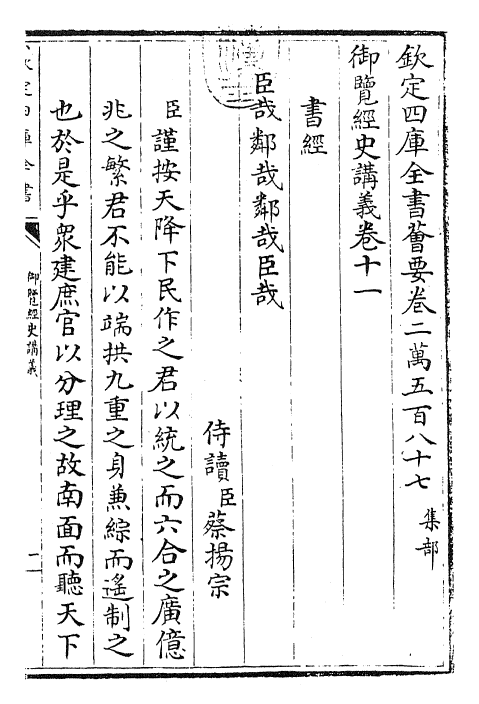 欽定四庫全書薈要卷二萬五百八十七 集部
御覽經史講義卷十一
書經
臣哉鄰哉鄰哉臣哉
侍讀臣蔡揚宗
臣謹按天降下民作之君以統之而六合之廣億
兆之繁君不能以端拱九重之身兼綜而遙制之
也於是乎眾建庶官以分理之故南面而聽天下
御覽經史講義